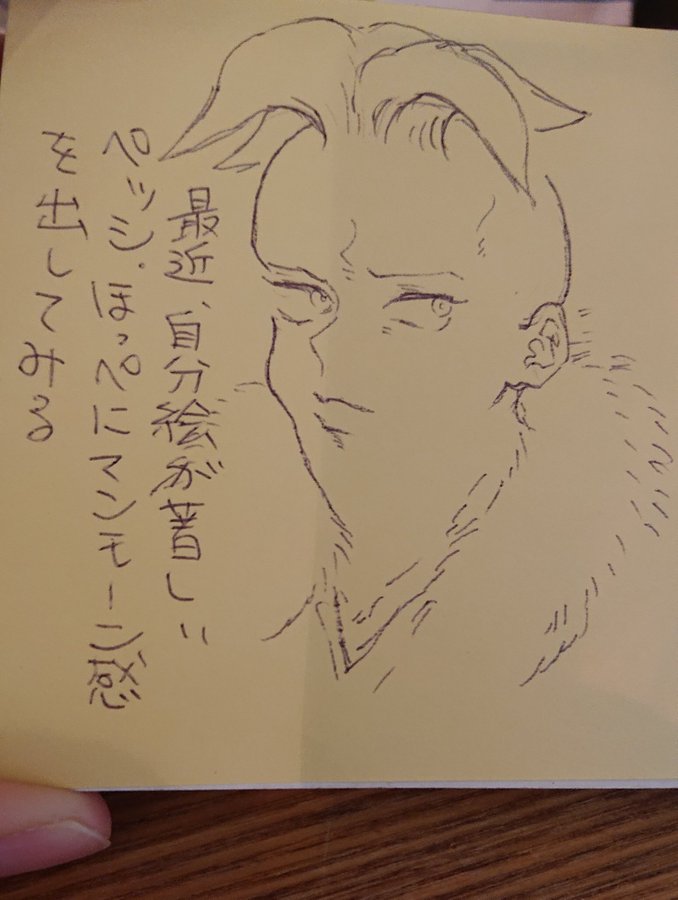 最近、自分絵が昔しに
ペッシ、ほっぺにマンモーニ感
を出してみる